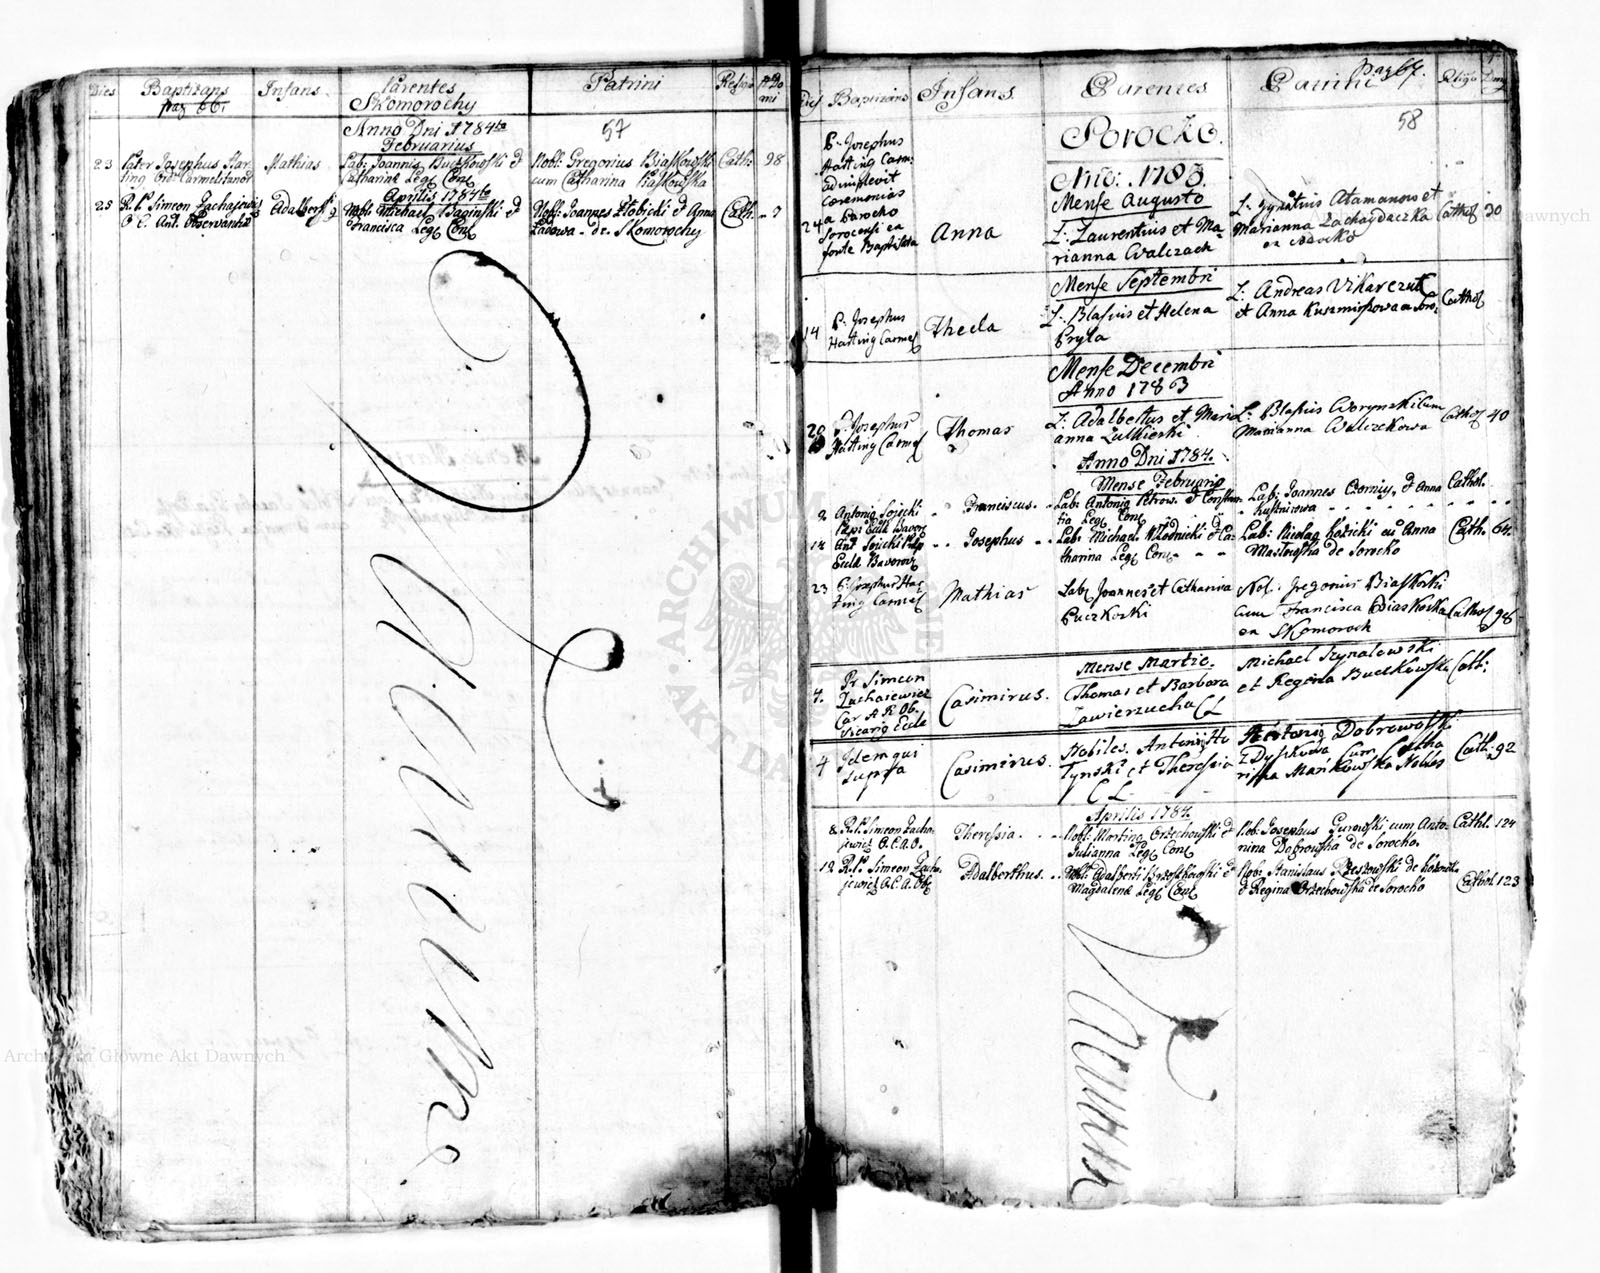 Dies
Baptizans
pag 66.
Infans
Parentes
Skomorochy
Patrini
Religio
Anno Dni 1784to
57
Februarius
23
Pater Josephus Har-
ting Ord. Carmelitanor
Mathias
Lab: Joannis Buczkowski et
Catharinæ Leg: Conj
Nobl: Gregorius Biaskowski
cum Catharina Biaskowska
Cath:
98
Aprilis 1784to
25
R. P. Simeon Zachajewicz
Adalbert
Nobl: Michael Baginski et
Francisca Leg: Conj
Nobl: Joannes Zlobicki et Anna
Ladowa de Skomorochy
Cath.
7
Vacuum
Dies
Baptizans
Infans.
Parentes
Patrini
pag 67.
Religio
58
Soroczko.
Anno. 1783.
Mense Augusto
24
P. Josephus
Harting Carm:
adimplevit
ceremonias
a Parocho
Sorocensi ex
fonte Baptisata
Anna
L: Laurentius et Ma-
rianna Walczach
L: Ignatius Atamanow et
Marianna Zachaydaczka
ex Soroczko
Cathol
30
Mense Septembri
14
P. Josephus
Harting Carmel
Thecla
L: Blasius et Helena
Pryla
L: Andreas Vikarczuk
et Anna Kuszmirszowa a Soro:
Cathol
Mense Decembri
Anno 1783
20
P. Josephus
Harting Carmel
Thomas
L: Adalbertus et Mari
anna Zulkierski
L: Blasius Worynski cum
Marianna Walczkowa
Cathol
40
Anno Dni 1784.
Mense Februario
2
Antonius Soiecki
Franciscus.
Lab: Antonius Petrow. et Constan-
tia Leg: Conj
Lab: Joannes Czorniy, et Anna
Kusnirowa
Cathol.
14
Ant. Soiecki
Josephus
Lab: Michael Wlodnicki et Ca-
tharina Leg: Conj
Lab: Nicolaus Kozicki et Anna
Maslowska de Sorocko
Cath.
64.
23
P: Josephus Har
ting Carmel
Mathias
Lab: Joannes et Catharina
Buczkoski
Nob: Gregorius Biaskoski
cum Francisca Biaskoska
ex Skomoroch
Cathol
98
Mense Martio.
4.
Pr Simeon
Zachaiewicz
Car A R Ob.
Vicarius Eccle
Casimirus.
Thomas et Barbara
Zawierzucha CL
Michael Szynalewski
et Regina Buczkowski
Cath:
4
Idem qui
supra
Casimirus.
Nobiles. Antonius Hu
tynski et Theressia
CL
Antonius Dobrowolski
Z Dyszkowa Cum Catha
rina Mankowska Nobles
Cath:
92
Aprilis 1784.
8
R. P. Simeon Zacha-
jewicz O.C.A.O.
Theressia.
Nobl: Martino Orzechowski et
Julianna Leg: Conj
Nob: Josephus Gurowski cum Anto-
nina Dobrowska de Sorocko.
Cathl.
124
12
R. P. Simeon Zacha-
jewicz O.C.A. Obs
Adalberthus.
Nobl: Adalberti Brzoskowski et
Magdalena Leg: Conj
Nob: Stanislaus Rzeszowski de
et Regina Orzechowska de Sorocko
Cathol
123
Vacuum
ARCHIWUM GŁÓWNE AKT DAWNYCH
Archiwum Główne Akt Dawnych
Archiwum Główne Akt Dawnych